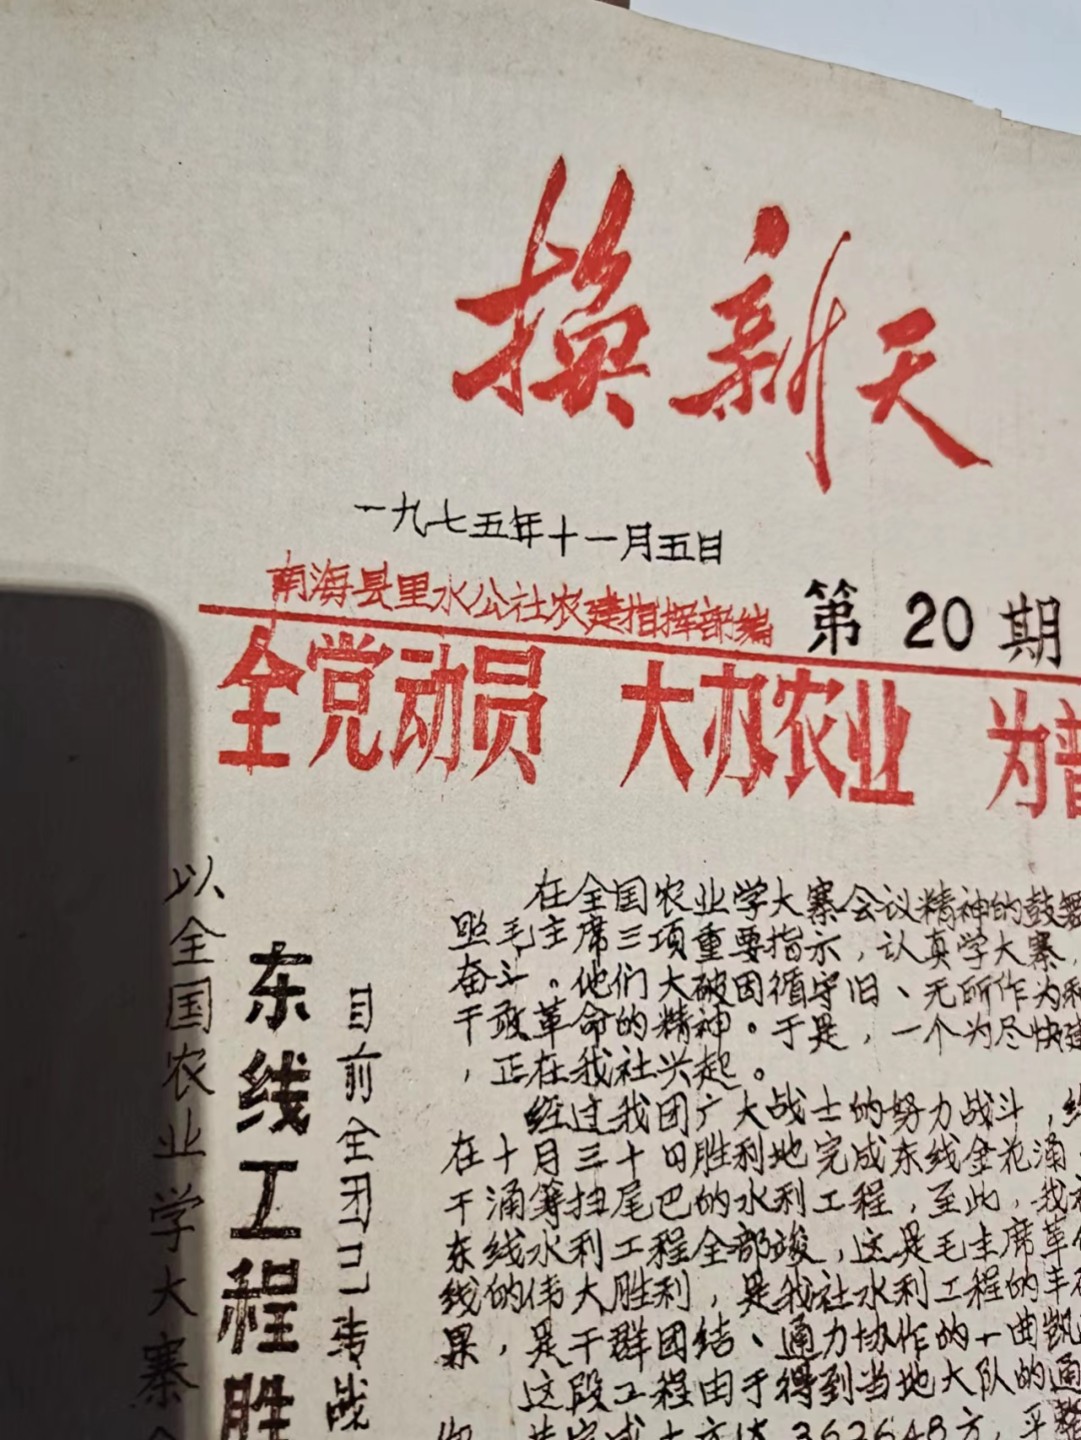 换新天
一九七五年十一月五日
南海县里水公社农建指挥部编
第20期
全党动员 大办农业 为普
以全国农业学大寨会
东线工程胜
目前全团已转战
在全国农业学大寨会议精神的鼓舞
照毛主席三项重要指示，认真学大寨，
奋斗。他们大破因循守旧、无所作为和
干敢革命的精神。于是，一个为尽快建
，正在我社兴起。
经过我团广大战士的努力战斗，终
在十月三十日胜利地完成东线金花涌
干涌等扫尾巴的水利工程，至此，我社
东线水利工程全部竣，这是毛主席革命
线的伟大胜利，是我社水利工程的丰硕
果，是干群团结、通力协作的一曲凯
这段工程由于得到当地大队的通
共完成土方达362648方，平整